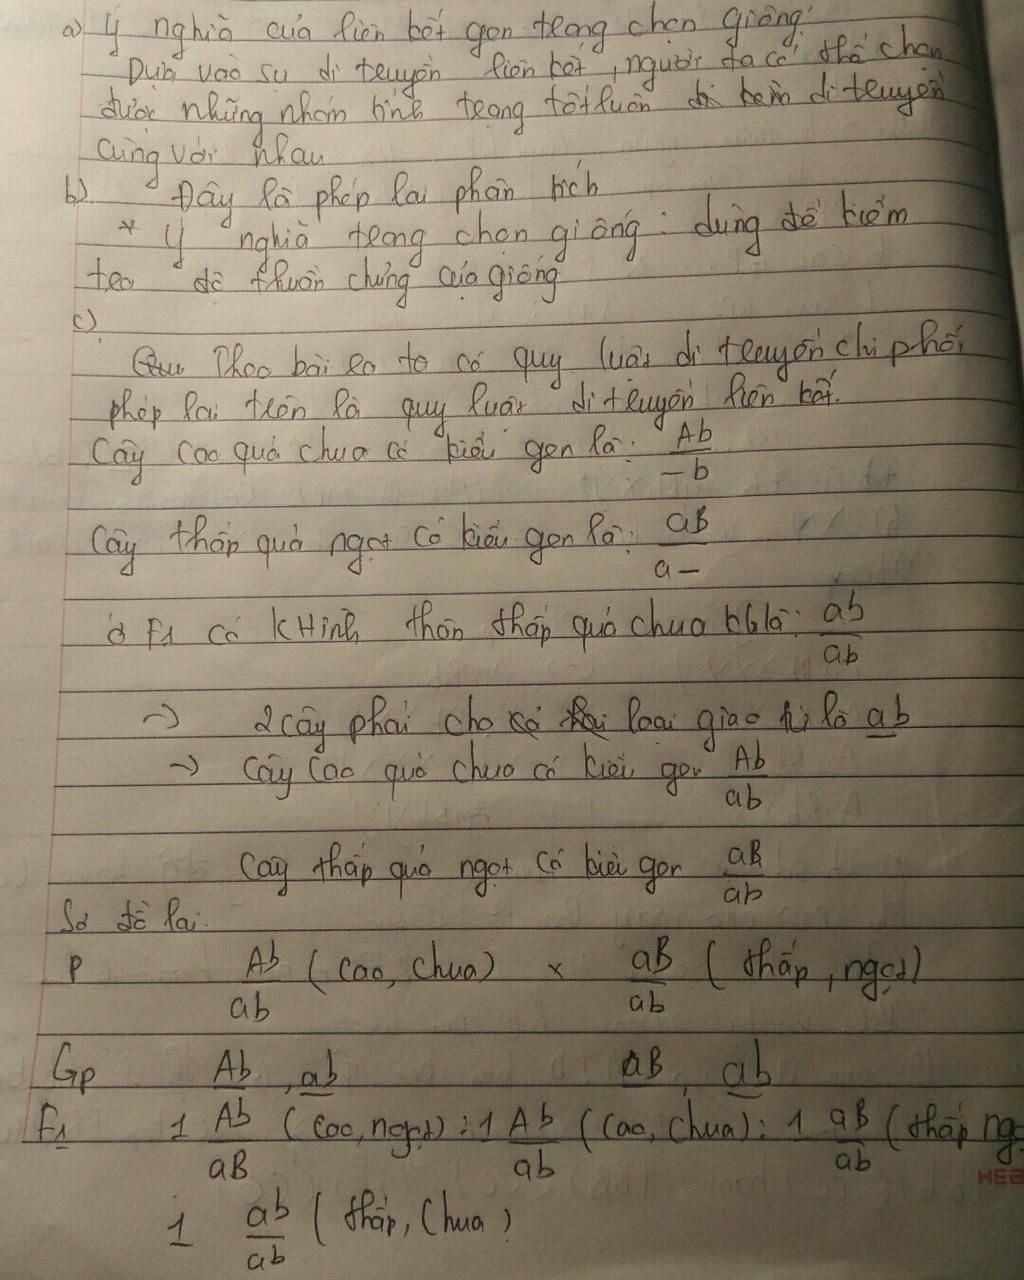 a) Ý nghĩa của liên kết gen trong chọn giống:
Dựa vào sự di truyền liên kết, người ta có thể chọn
được những nhóm tính trạng tốt luôn đi kèm di truyền
cùng với nhau
b) Đây là phép lai phân tích
* Ý nghĩa trong chọn giống: dùng để kiểm
tra độ thuần chủng của giống
c)
Theo bài ra ta có quy luật di truyền chi phối
phép lai trên là quy luật di truyền liên kết.
Cây cao quả chua có kiểu gen là: Ab
-b
Cây thấp quả ngọt có kiểu gen là: aB
a-
ở F1 có KHình thân thấp quả chua KG là: ab
ab
→ 2 cây phải cho loại giao tử là ab
→ Cây cao quả chua có kiểu gen Ab
ab
Cây thấp quả ngọt có kiểu gen aB
ab
Sơ đồ lai:
P Ab (cao, chua) x aB (thấp, ngọt)
ab ab
Gp Ab, ab aB, ab
F1 1 Ab (cao, ngọt) : 1 Ab (cao, chua) : 1 aB (thấp ng
aB ab ab
HEB
1 ab (thấp, chua)
ab